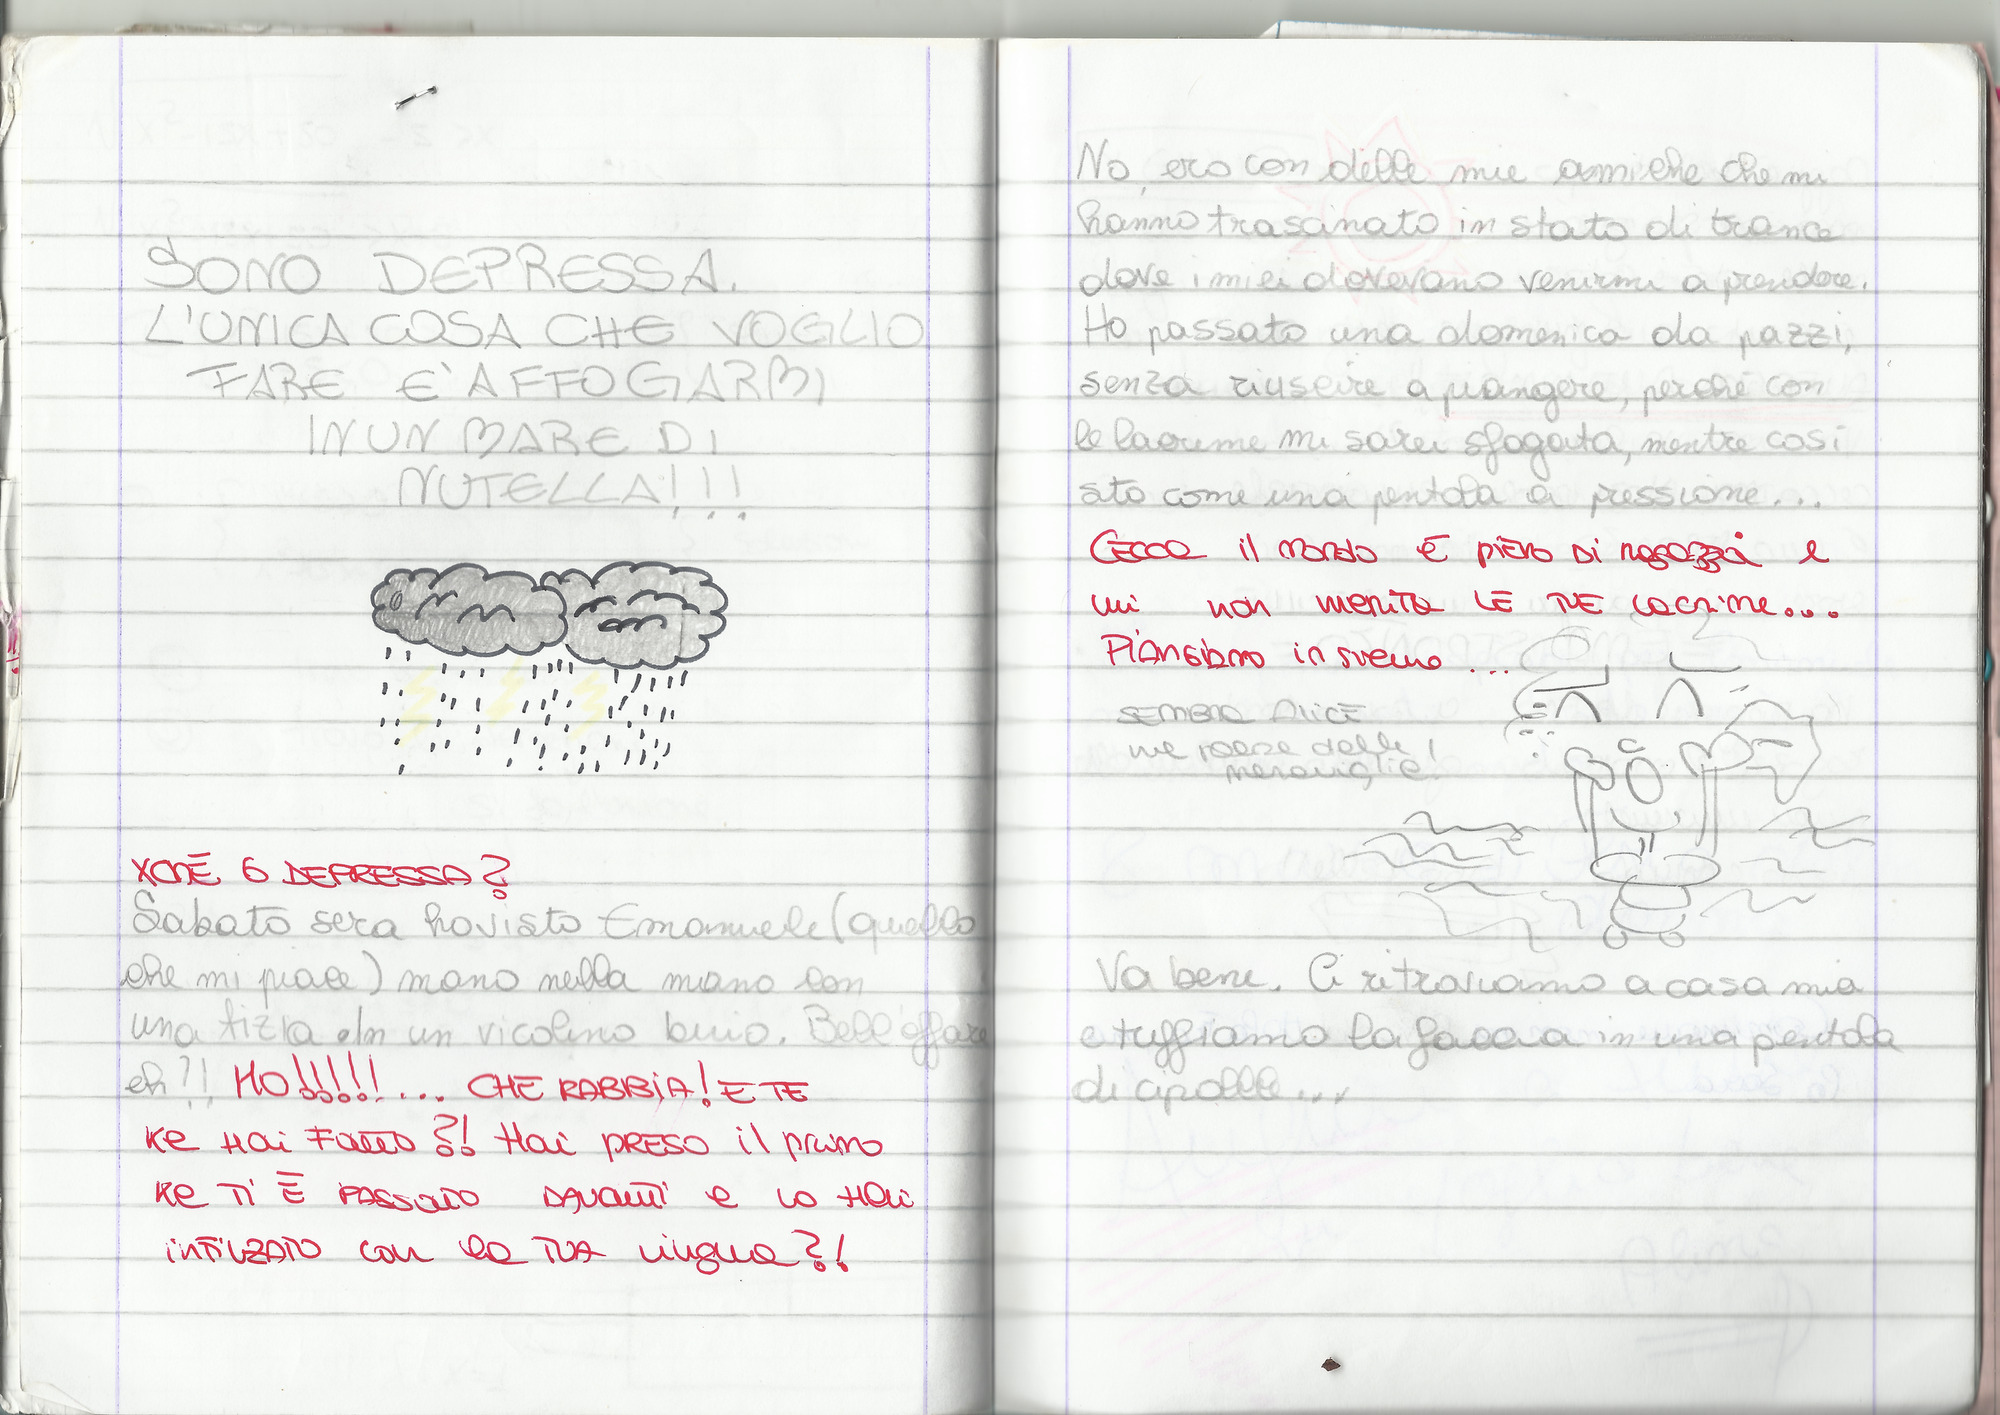 SONO DEPRESSA.
L'UNICA COSA CHE VOGLIO
FARE E' AFFOGARMI
IN UN MARE DI
NUTELLA!!!
XCHÉ 6 DEPRESSA?
Sabato sera ho visto Emanuele (quello
che mi piace) mano nella mano con
una tizia in un vicolino buio. Bell'affare
eh?! HO!!!!!... CHE RABBIA! E TE
KE HAI FATTO?! HAI PRESO il primo
KE TI È PASSATO DAVANTI e lo HAI
INFILZATO con la TUA lingua?!
No, ero con delle mie amiche che mi
hanno trascinato in stato di trance
dove i miei dovevano venirmi a prendere.
Ho passato una domenica da pazzi,
senza riuscire a piangere, perché con
le lacrime mi sarei sfogata, mentre così
sto come una pentola a pressione...
il mondo è pieno di ragazzi e
lui non merita LE TUE lacrime...
PiANGiAMO insieme...
SEMBRA ALICE
nel paese delle
meraviglie!
Va bene. Ci ritroviamo a casa mia
e tuffiamo la faccia in una pentola
di cipolle...